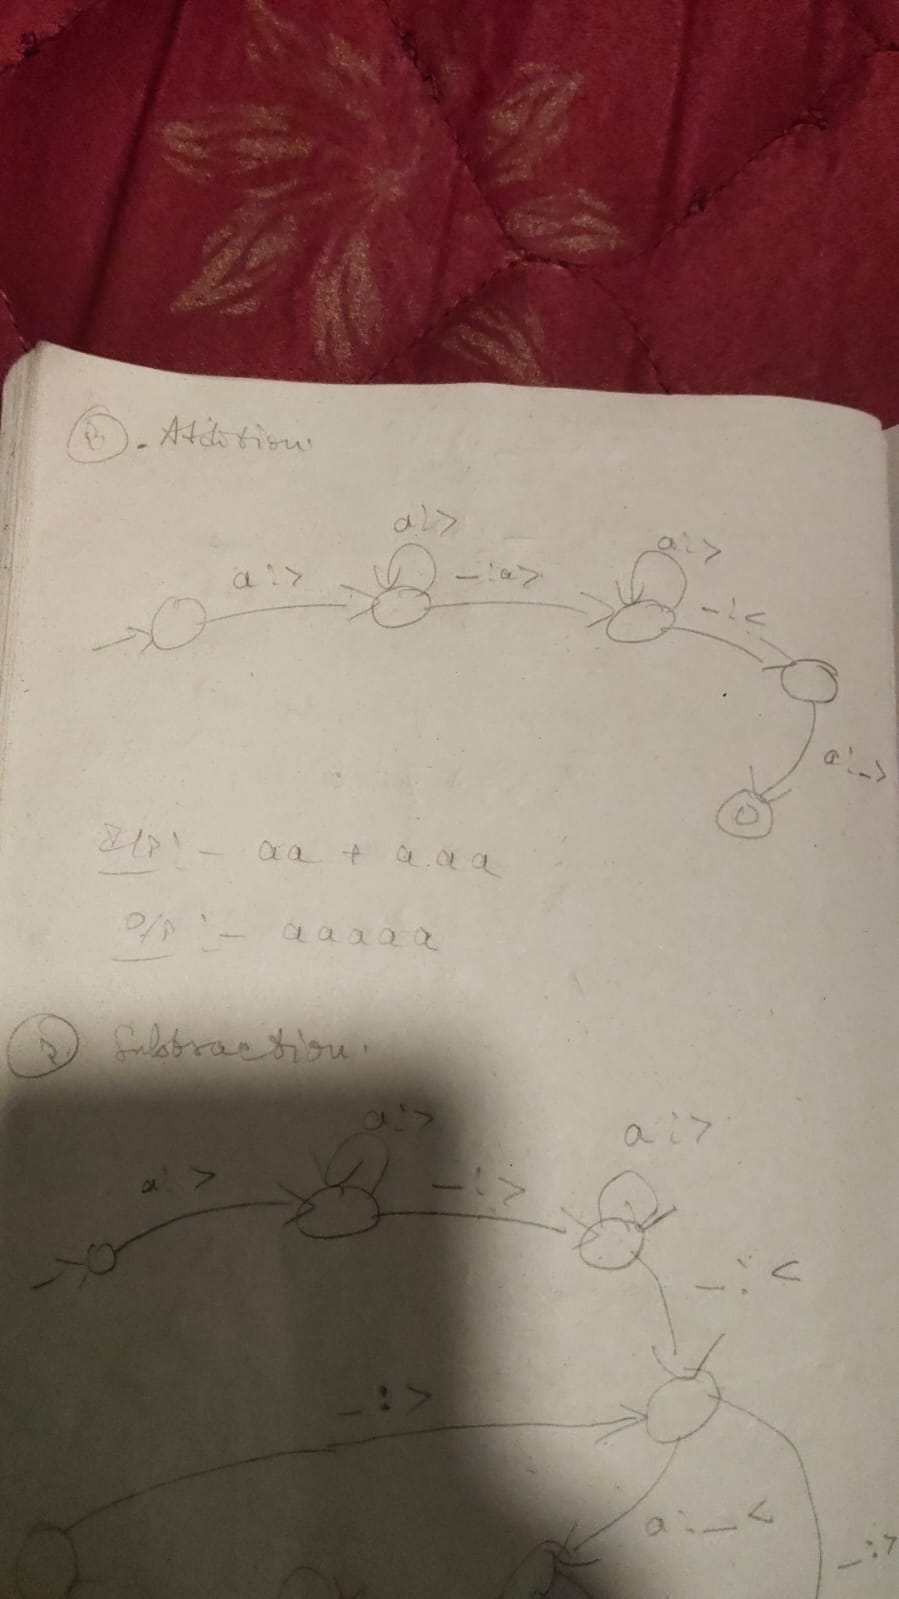 Addition
a:>
a:>
a:>
-:a>
-:<
a:_>
I/P :- aa + aaa
O/P :- aaaaa
Subtraction.
a:>
a:>
a:>
-:>
_:<
_:>
a:_<
_:>